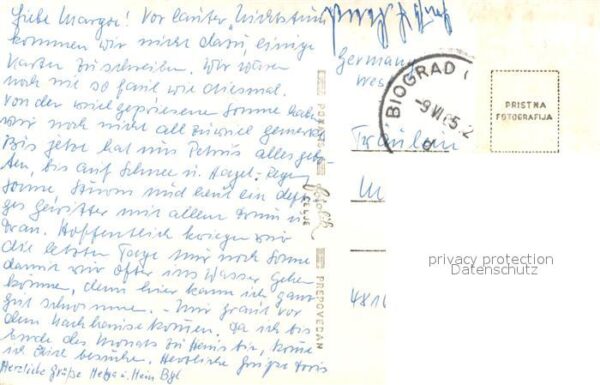 Liebe Margot! Vor lauter "Nichtstun"
kommen wir nicht dazu, einige
Karten zu schreiben. Wir waren
noch nie so faul wie diesmal.
Von der vielgepriesene Sonne haben
wir noch nicht allzuviel gemerkt.
Bis jetzt hat uns Petrus alles gebo-
ten, bis auf Schnee u. Hagel: Regen
Sonne, Sturm und heut ein defti-
ges Gewitter mit allem Drum u.
Dran. Hoffentlich kriegen wir
die letzten Tage nur noch Sonne
damit wir öfter ins Wasser gehen
können, denn hier kann ich ganz
gut schwimmen. - Mir graut vor
dem Nachhausekommen. Da ich bis
Ende des Monats zu Hause bin, komme
ich Dich besuchen. Herzliche Grüße Doris
Herzliche Grüße Helga u. Hein
Germany
West
BIOGRAD
-9 VI 65
Fräulein
M
4816
PRISTNA
FOTOGRAFIJA
CELJE
PREPOVEDAN
privacy protection
Datenschutz